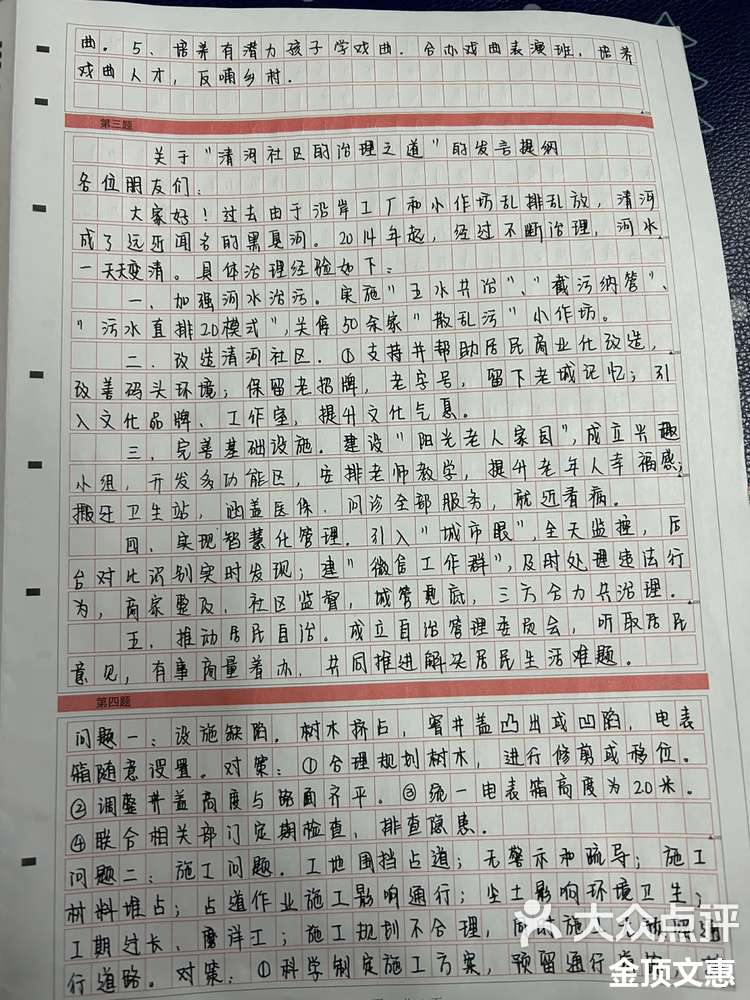 曲。5、培养有潜力孩子学戏曲．合办戏曲表演班，培养
戏曲人才，反哺乡村．
第三题
关于"清河社区的治理之道"的发言提纲
各位朋友们：
大家好！过去由于沿岸工厂和小作坊乱排乱放，清河
成了远近闻名的黑臭河。2014年起，经过不断治理，河水
一天天变清。具体治理经验如下：
一、加强河水治污。实施"五水共治"、"截污纳管"、
"污水直排2.0模式"，关停50余家"散乱污"小作坊。
二、改造清河社区．①支持并帮助居民商业化改造，
改善码头环境；保留老招牌，老字号，留下老城记忆；引
入文化品牌、工作室，提升文化气息。
三、完善基础设施．建设"阳光老人家园"，成立兴趣
小组，开发多功能区，安排老师教学，提升老年人幸福感；
搬迁卫生站，涵盖医保、问诊全部服务，就近看病。
四、实现智慧化管理．引入"城市眼"，全天监控，后
台对比识别实时发现；建"微信工作群"，及时处理违法行
为，商家整改，社区监督，城管兜底，三方合力共治理．
五、推动居民自治。成立自治管理委员会，听取居民
意见，有事商量着办．共同推进解决居民生活难题。
第四题
问题一：设施缺陷．树木挤占，窨井盖凸出或凹陷，电表
箱随意设置。对策：①合理规划树木，进行修剪或移位。
②调整井盖高度与路面齐平。③统一电表箱高度为2.0米。
④联合相关部门定期检查，排查隐患．
问题二：施工问题．工地围挡占道；无警示和疏导；施工
材料堆占；占道作业施工影响通行；尘土影响环境卫生；
工期过长、磨洋工；施工规划不合理，同时施工
行道路。对策：①科学制定施工方案，预留通行
大众点评
金顶文惠